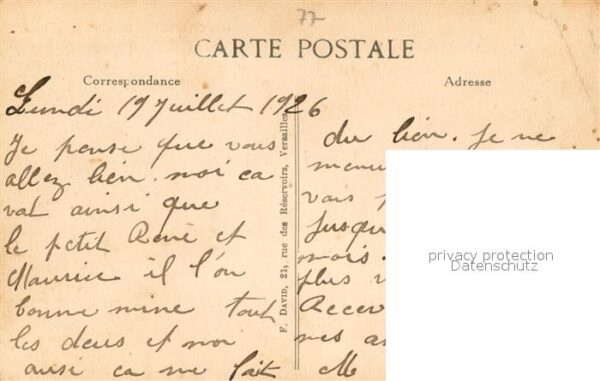 77
CARTE POSTALE
Correspondance
Adresse
Lundi 19 Juillet 1926
Je pense que vous
allez bien. moi ca
vat ainsi que
le petit René et
Maurice il l'on
bonne mine tout
les deus et moi
aussi ca me fait
F. DAVID, 21, rue des Réservoirs, Versailles
du bien. Je ne
vais
Jusqu
mois.
plus
Recev
mes a
M
privacy protection
Datenschutz